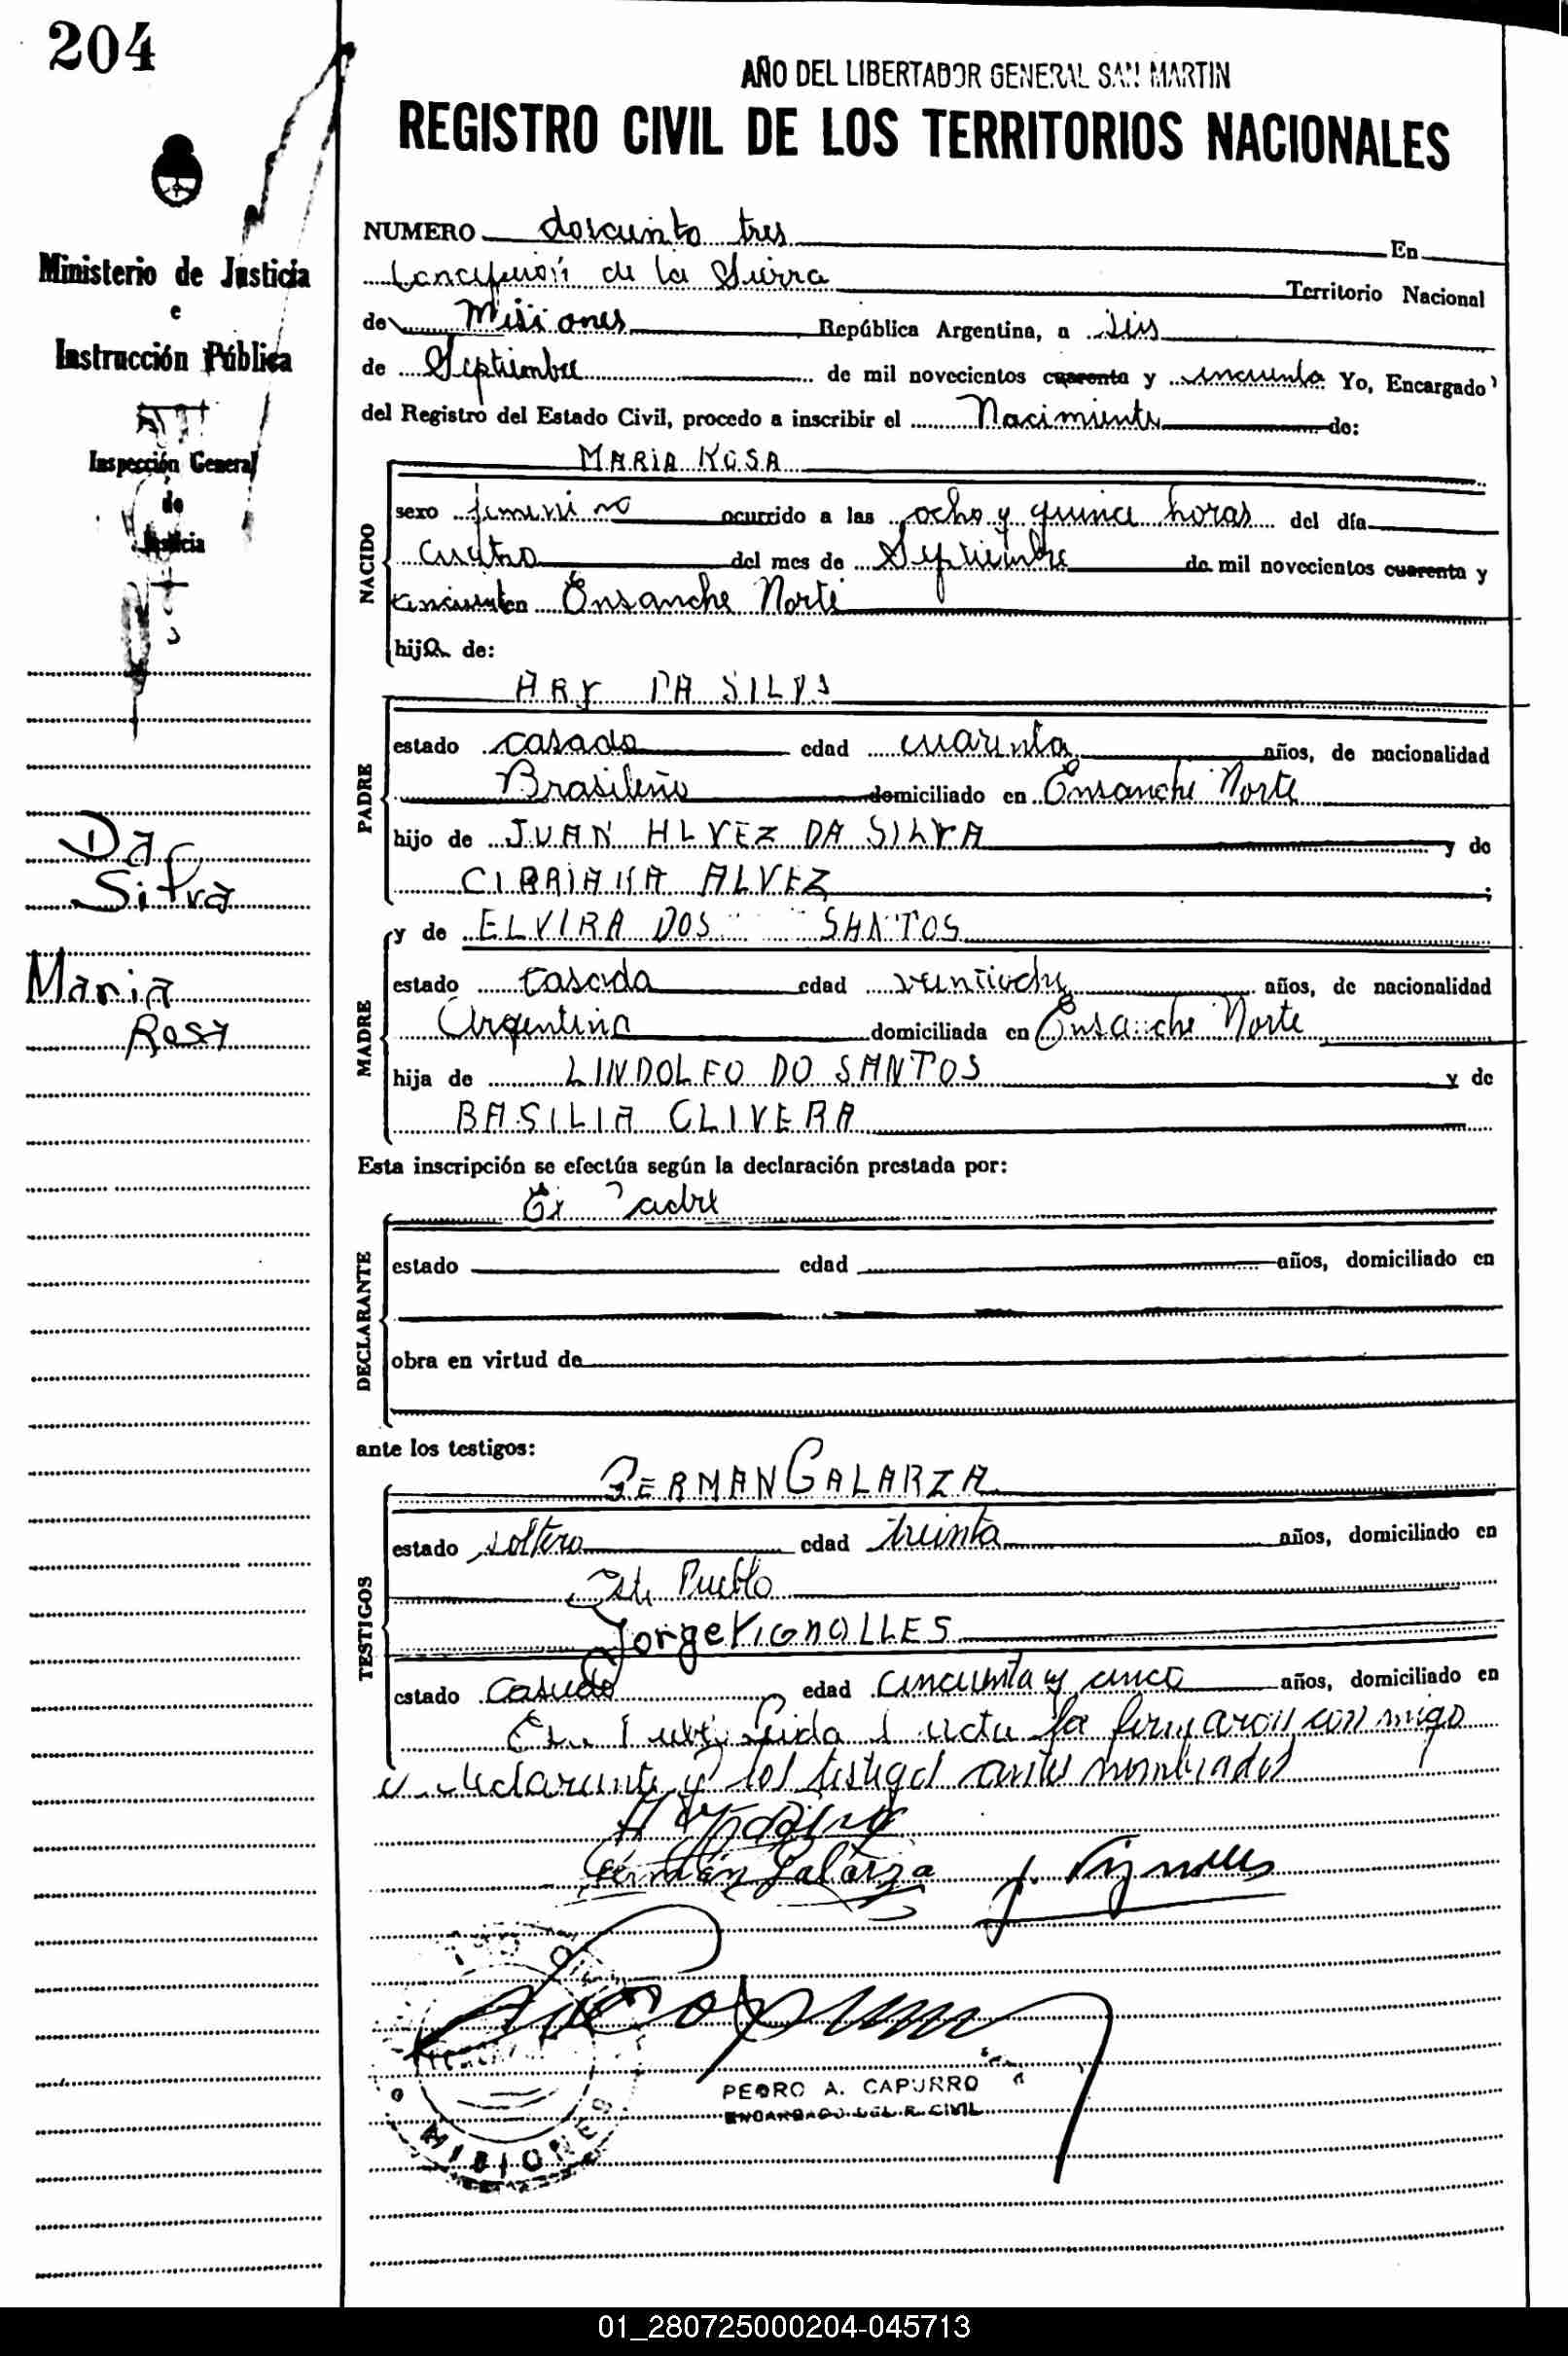 204
AÑO DEL LIBERTADOR GENERAL SAN MARTIN
REGISTRO CIVIL DE LOS TERRITORIOS NACIONALES
Ministerio de Justicia
e
Instrucción Pública
Inspección General
de
Justicia
Da
Silva
Maria
Rosa
NUMERO dosciento tres En
Concepción de la Sierra Territorio Nacional
de Misiones República Argentina, a seis
de Septiembre de mil novecientos cuarenta y cincuenta Yo, Encargado
del Registro del Estado Civil, procedo a inscribir el Nacimiento de:
NACIDO
MARIA ROSA
sexo femenino ocurrido a las ocho y quince horas del día
cuatro del mes de Septiembre de mil novecientos cuarenta y
cincuenta en Ensanche Norte
hija de:
PADRE
ARY DA SILVA
estado casado edad cuarenta años, de nacionalidad
Brasileño domiciliado en Ensanche Norte
hijo de JUAN ALVEZ DA SILVA y de
CIBRIANA ALVEZ ;
MADRE
y de ELVIRA DOS SANTOS
estado casada edad veintiocho años, de nacionalidad
Argentina domiciliada en Ensanche Norte
hija de LINDOLFO DO SANTOS y de
BASILIA OLIVERA
Esta inscripción se efectúa según la declaración prestada por:
DECLARANTE
El Padre
estado edad años, domiciliado en
obra en virtud de
ante los testigos:
TESTIGOS
GERMAN GALARZA
estado soltero edad treinta años, domiciliado en
Este Pueblo
Jorge VIGNOLLES
estado casado edad cincuenta y cinco años, domiciliado en
Este Pueblo Leida l acta la firmaron conmigo
el declarante y los testigos antes nombrados
Ary da Silva
Germán Galarza J. Vignolles
PEDRO A. CAPURRO
ENCARGADO DEL R. CIVIL
MISIONES
01_280725000204-045713